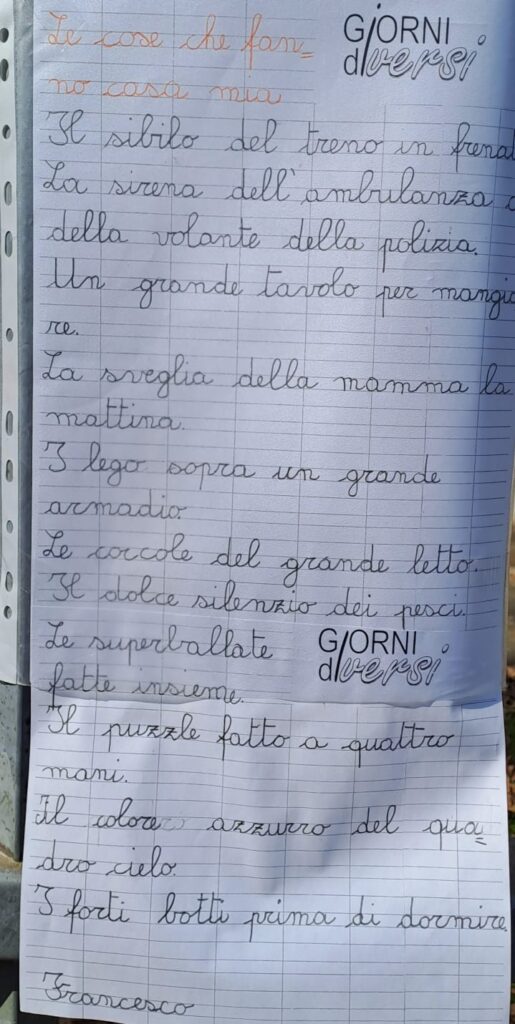 Le cose che fan=
GIORNI
diversi
no casa mia
Il sibilo del treno in frenat
La sirena dell'ambulanza
della volante della polizia.
Un grande tavolo per mangia
re.
La sveglia della mamma la
mattina.
I lego sopra un grande
armadio.
Le coccole del grande letto.
Il dolce silenzio dei pesci.
Le superballate
GIORNI
diversi
fatte insieme.
Il puzzle fatto a quattro
mani.
Il colore azzurro del qua=
dro cielo.
I forti botti prima di dormire.
Francesco